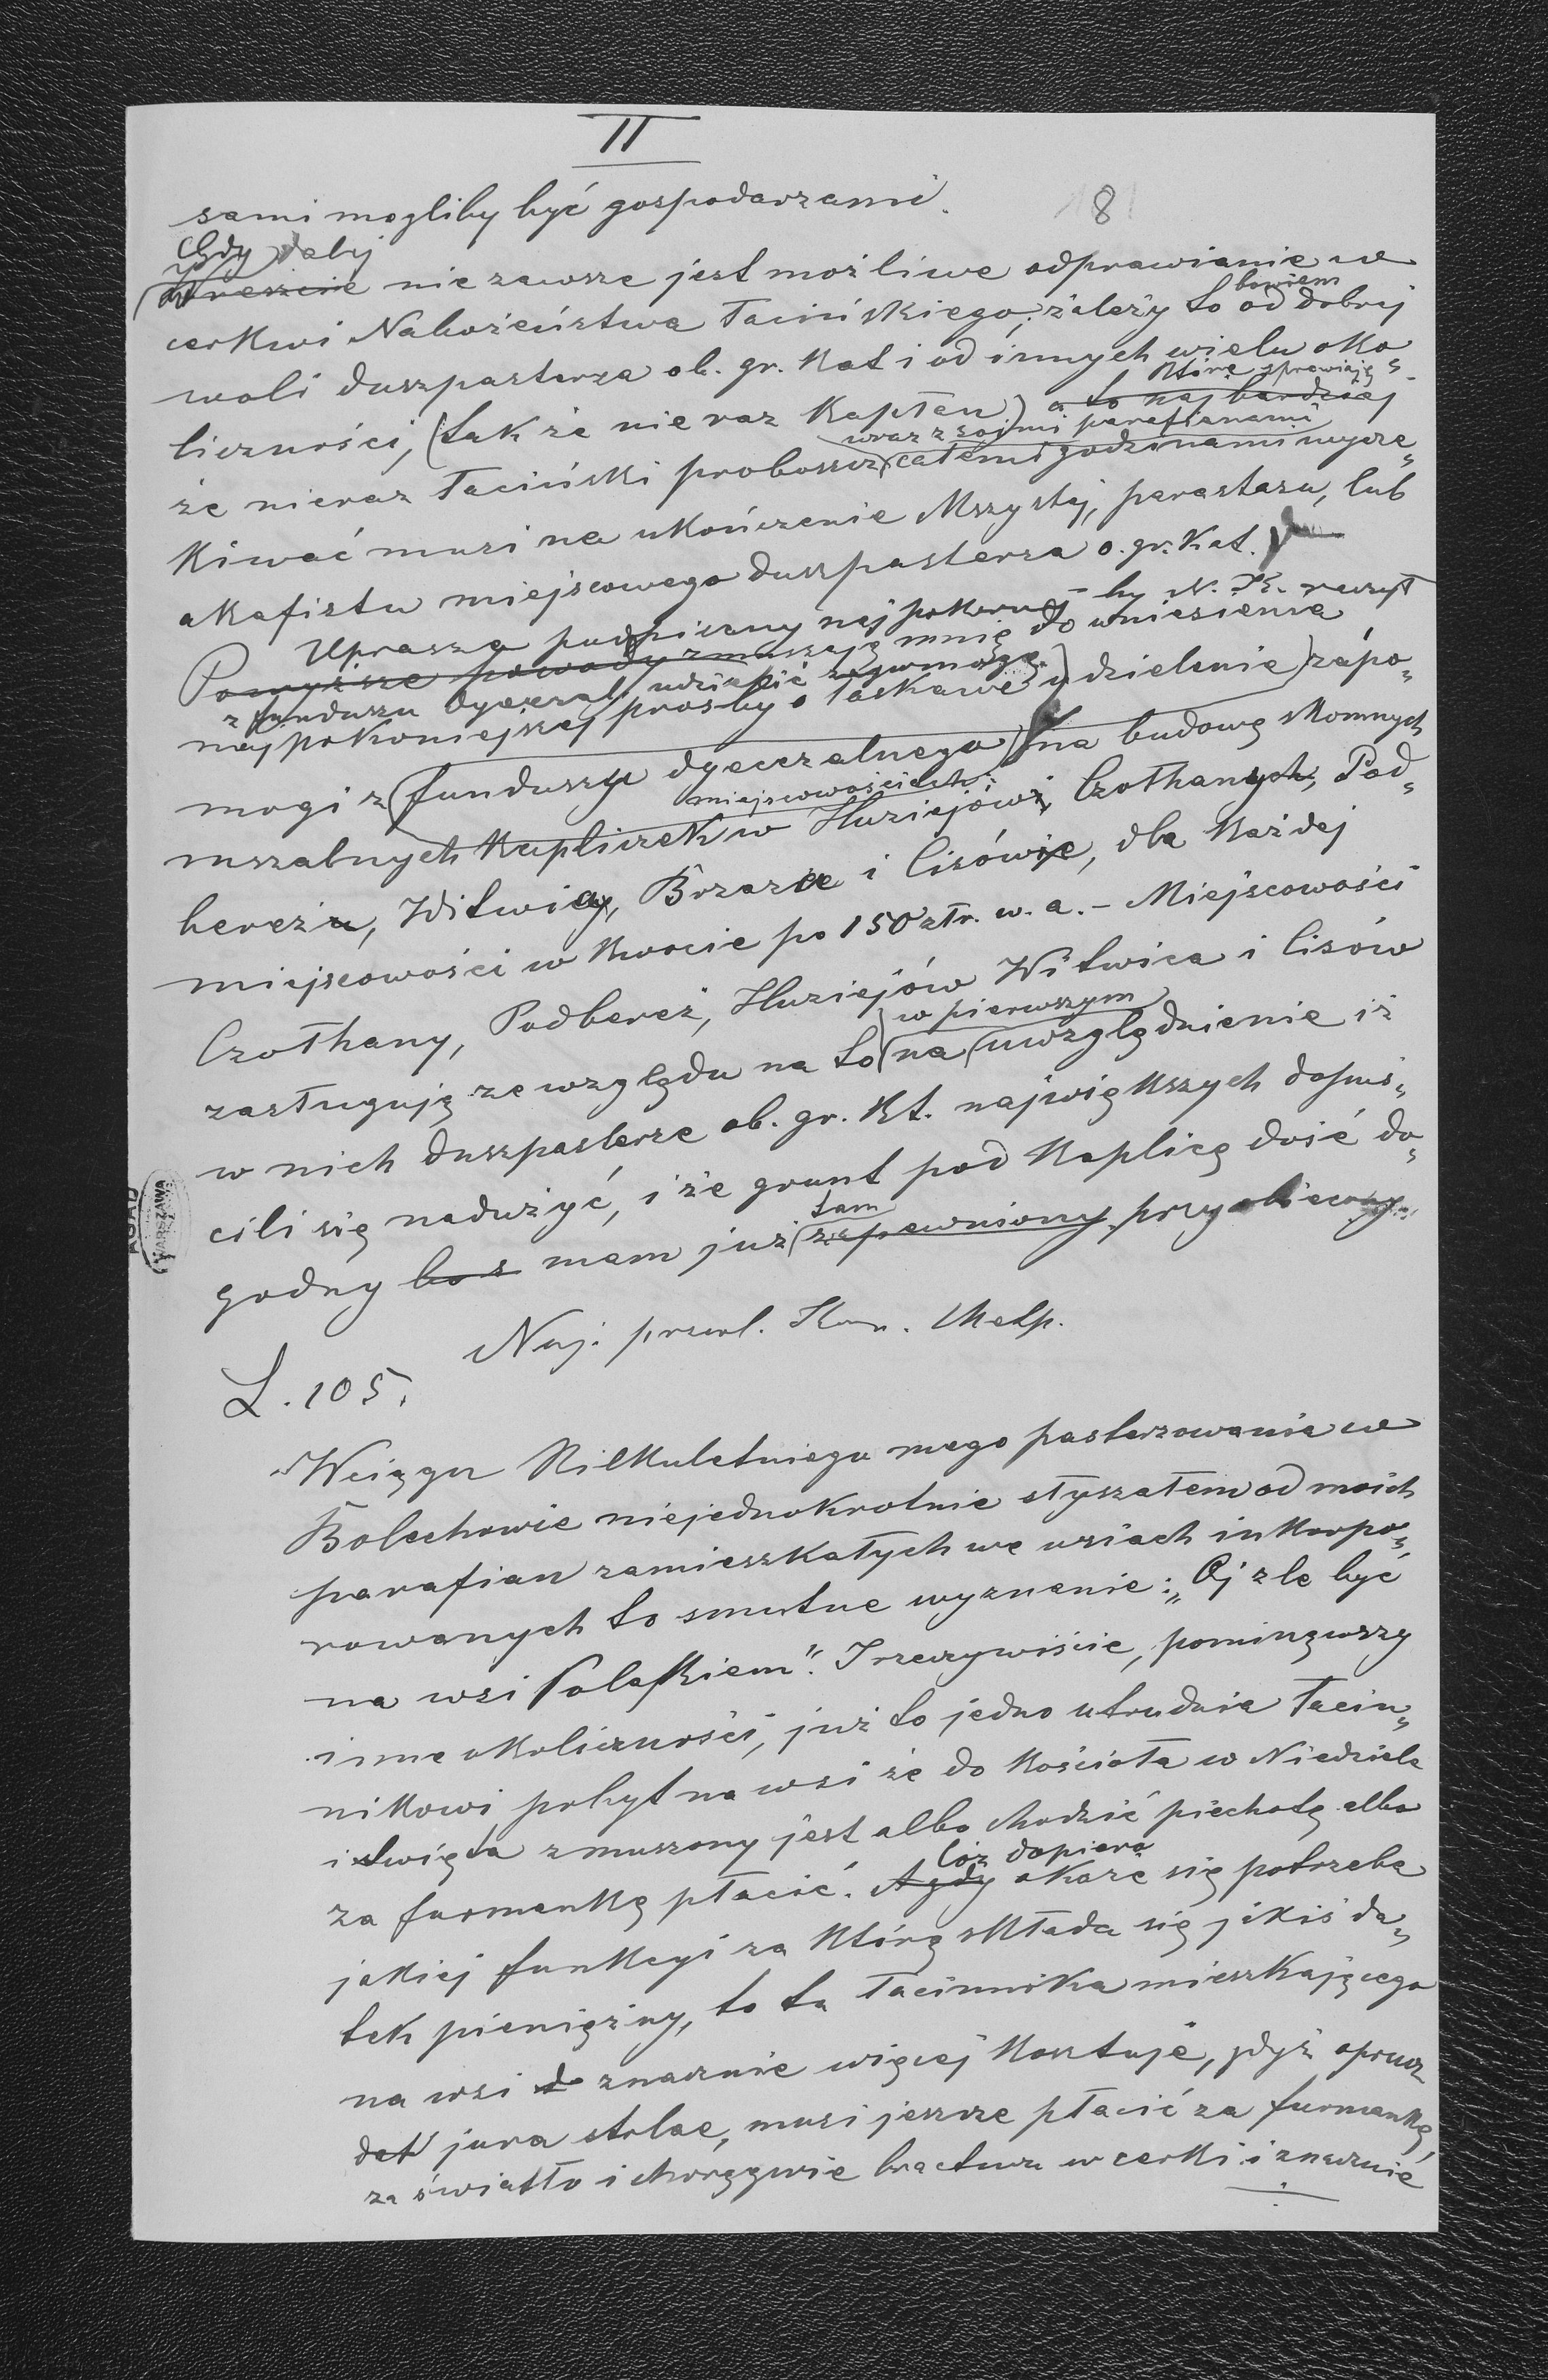 II
sami mogliby być gospodarzami.
181
Gdy dalej
Wreszcie nie zawsze jest możliwe odprawianie w
bowiem
cerkwi Nabożeństwa łacińskiego; zależy to od dobrej
woli duszpasterza ob. gr. kat i od innych wielu oko„
które sprawiają
liczności, (tak że nie raz kapłan) a to najbardziej
wraz z swymi parafianami
że nieraz łaciński proboszcz całemi godzinami wycze„
kiwać musi na ukończenie Mszy stej, parastazu, lub
akafistu miejscowego duszpasterza o. gr. kat.
Uprasza podpisany najpokorniej by N. K. raczył
Powyższe powody zmuszają mnię do wniesienia
z funduszu dyecezal. udzielić zapomogę
najpokorniejszej prośby o łaskawe udzielenie zapo„
mogi z funduszu dyecezalnego na budowę skromnych
miejscowościach:
mszalnych kapliczek w Huziejów, Czołhanych, Pod„
bereżu, Witwicy, Brzaza i Cisówie, dla każdej
miejscowości w kwocie po 150 złr. w. a. – Miejscowości
Czołhany, Podbereż, Huziejów Witwica i Cisów
w pierwszym
zasługują ze względu na to na uwzględnienie iż
w nich duszpasterze ob. gr. kt. największych dopuś„
cili się nadużyć, i że grunt pod kaplicę dość do„
tam
godny bo s mam już zapewniony przyobiecany.
Naj. przewl. Kon. Metp.
L. 105.
W ciągu kilkuletniego mego pasterzowania w
Bolechowie niejednokrotnie słyszałem od moich
parafian zamieszkałych we wsiach inkorpo„
rowanych to smutne wyznanie: „Oj zle być
na wsi Polakiem". I rzeczywiście, pominąwszy
inne okoliczności, już to jedno utrudnia łacin„
nikowi pobyt na wsi że do kościoła w Niedziele
i święta zmuszony jest albo chodzić piechotą albo
Cóż dopiero
za furmankę płacić. A gdy okaże się potrzeba
jakiej funkcyi za którą składa się jakiś da„
tek pieniężny, to ta łacinnika mieszkającego
na wsi d znacznie więcej kosztuje, gdyż oprucz
dat jura stolae, musi jeszcze płacić za furmankę,
za światło i chorągwie bractwu w cerkwi i znacznie
AGAD
WARSZAWA